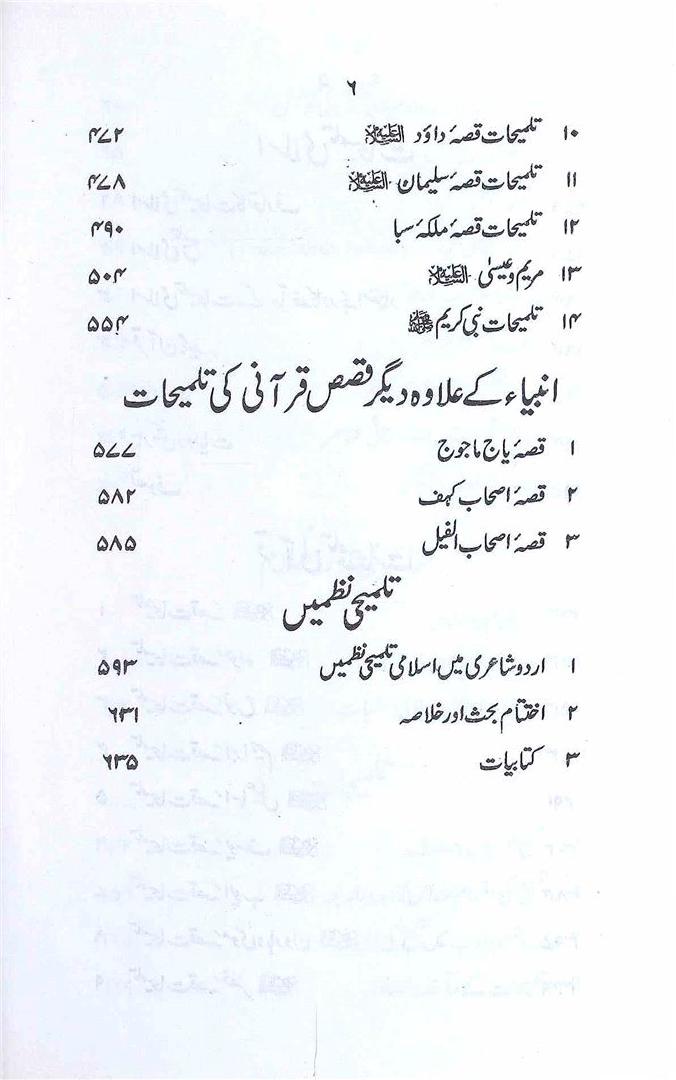 ۶
۱۰ تلمیحات قصۂ داؤد علیہ السلام ۴۷۲
۱۱ تلمیحات قصۂ سلیمان علیہ السلام ۴۷۸
۱۲ تلمیحات قصۂ ملکۂ سبا ۴۹۰
۱۳ مریم و عیسیٰ علیہ السلام ۵۰۴
۱۴ تلمیحات نبی کریم ﷺ ۵۵۴
انبیاء کے علاوہ دیگر قصص قرآنی کی تلمیحات
۱ قصۂ یاج ماجوج ۵۷۷
۲ قصۂ اصحاب کہف ۵۸۲
۳ قصۂ اصحاب الفیل ۵۸۵
تلمیحی نظمیں
۱ اردو شاعری میں اسلامی تلمیحی نظمیں ۵۹۳
۲ اختتام بحث اور خلاصہ ۶۳۱
۳ کتابیات ۶۳۵